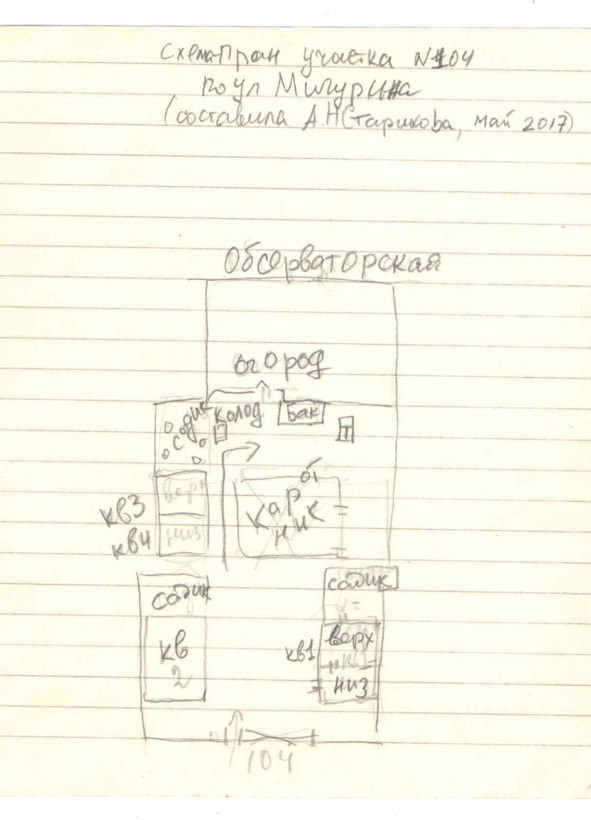 Схема-План участка №104
по ул Мичурина
(составила А.Н Старикова, май 2017)
Обсерваторская
огород
садик
колод
Бак
Т
верх
кв3
низ
кв4
садик
садик
кв
2
кв1
верх
низ
104